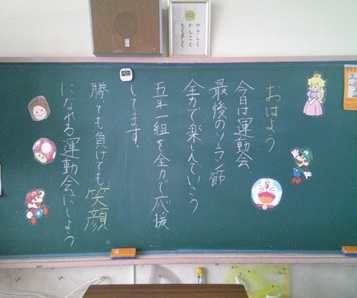 おはよう
今日は運動会
最後のソーラン節
全力で楽しんでいこう
五年一組を全力で応援
してます。
勝っても負けても笑顔
になれる運動会にしよう
やさしく
かしこく
たくましく